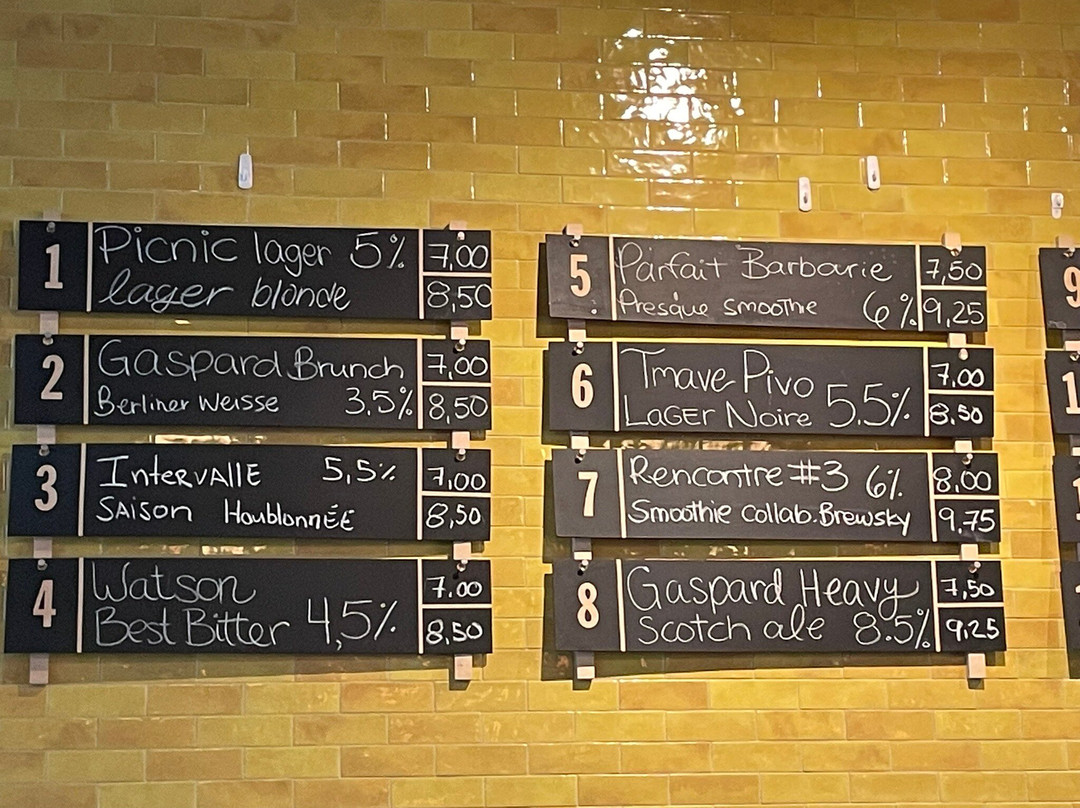 1
Picnic lager 5% 7,00
lager blonde 8,50
2
Gaspard Brunch 7,00
Berliner Weisse 3.5% 8,50
3
Intervalle 5,5% 7,00
Saison Houblonnée 8,50
4
Watson 7.00
Best Bitter 4,5% 8,50
5
Parfait Barbarie 7,50
Presque smoothie 6% 9,25
6
Tmave Pivo 7,00
Lager Noire 5.5% 8,50
7
Rencontre #3 6% 8,00
Smoothie collab. Brewsky 9,75
8
Gaspard Heavy 7,50
Scotch ale 8.5% 9,25
9